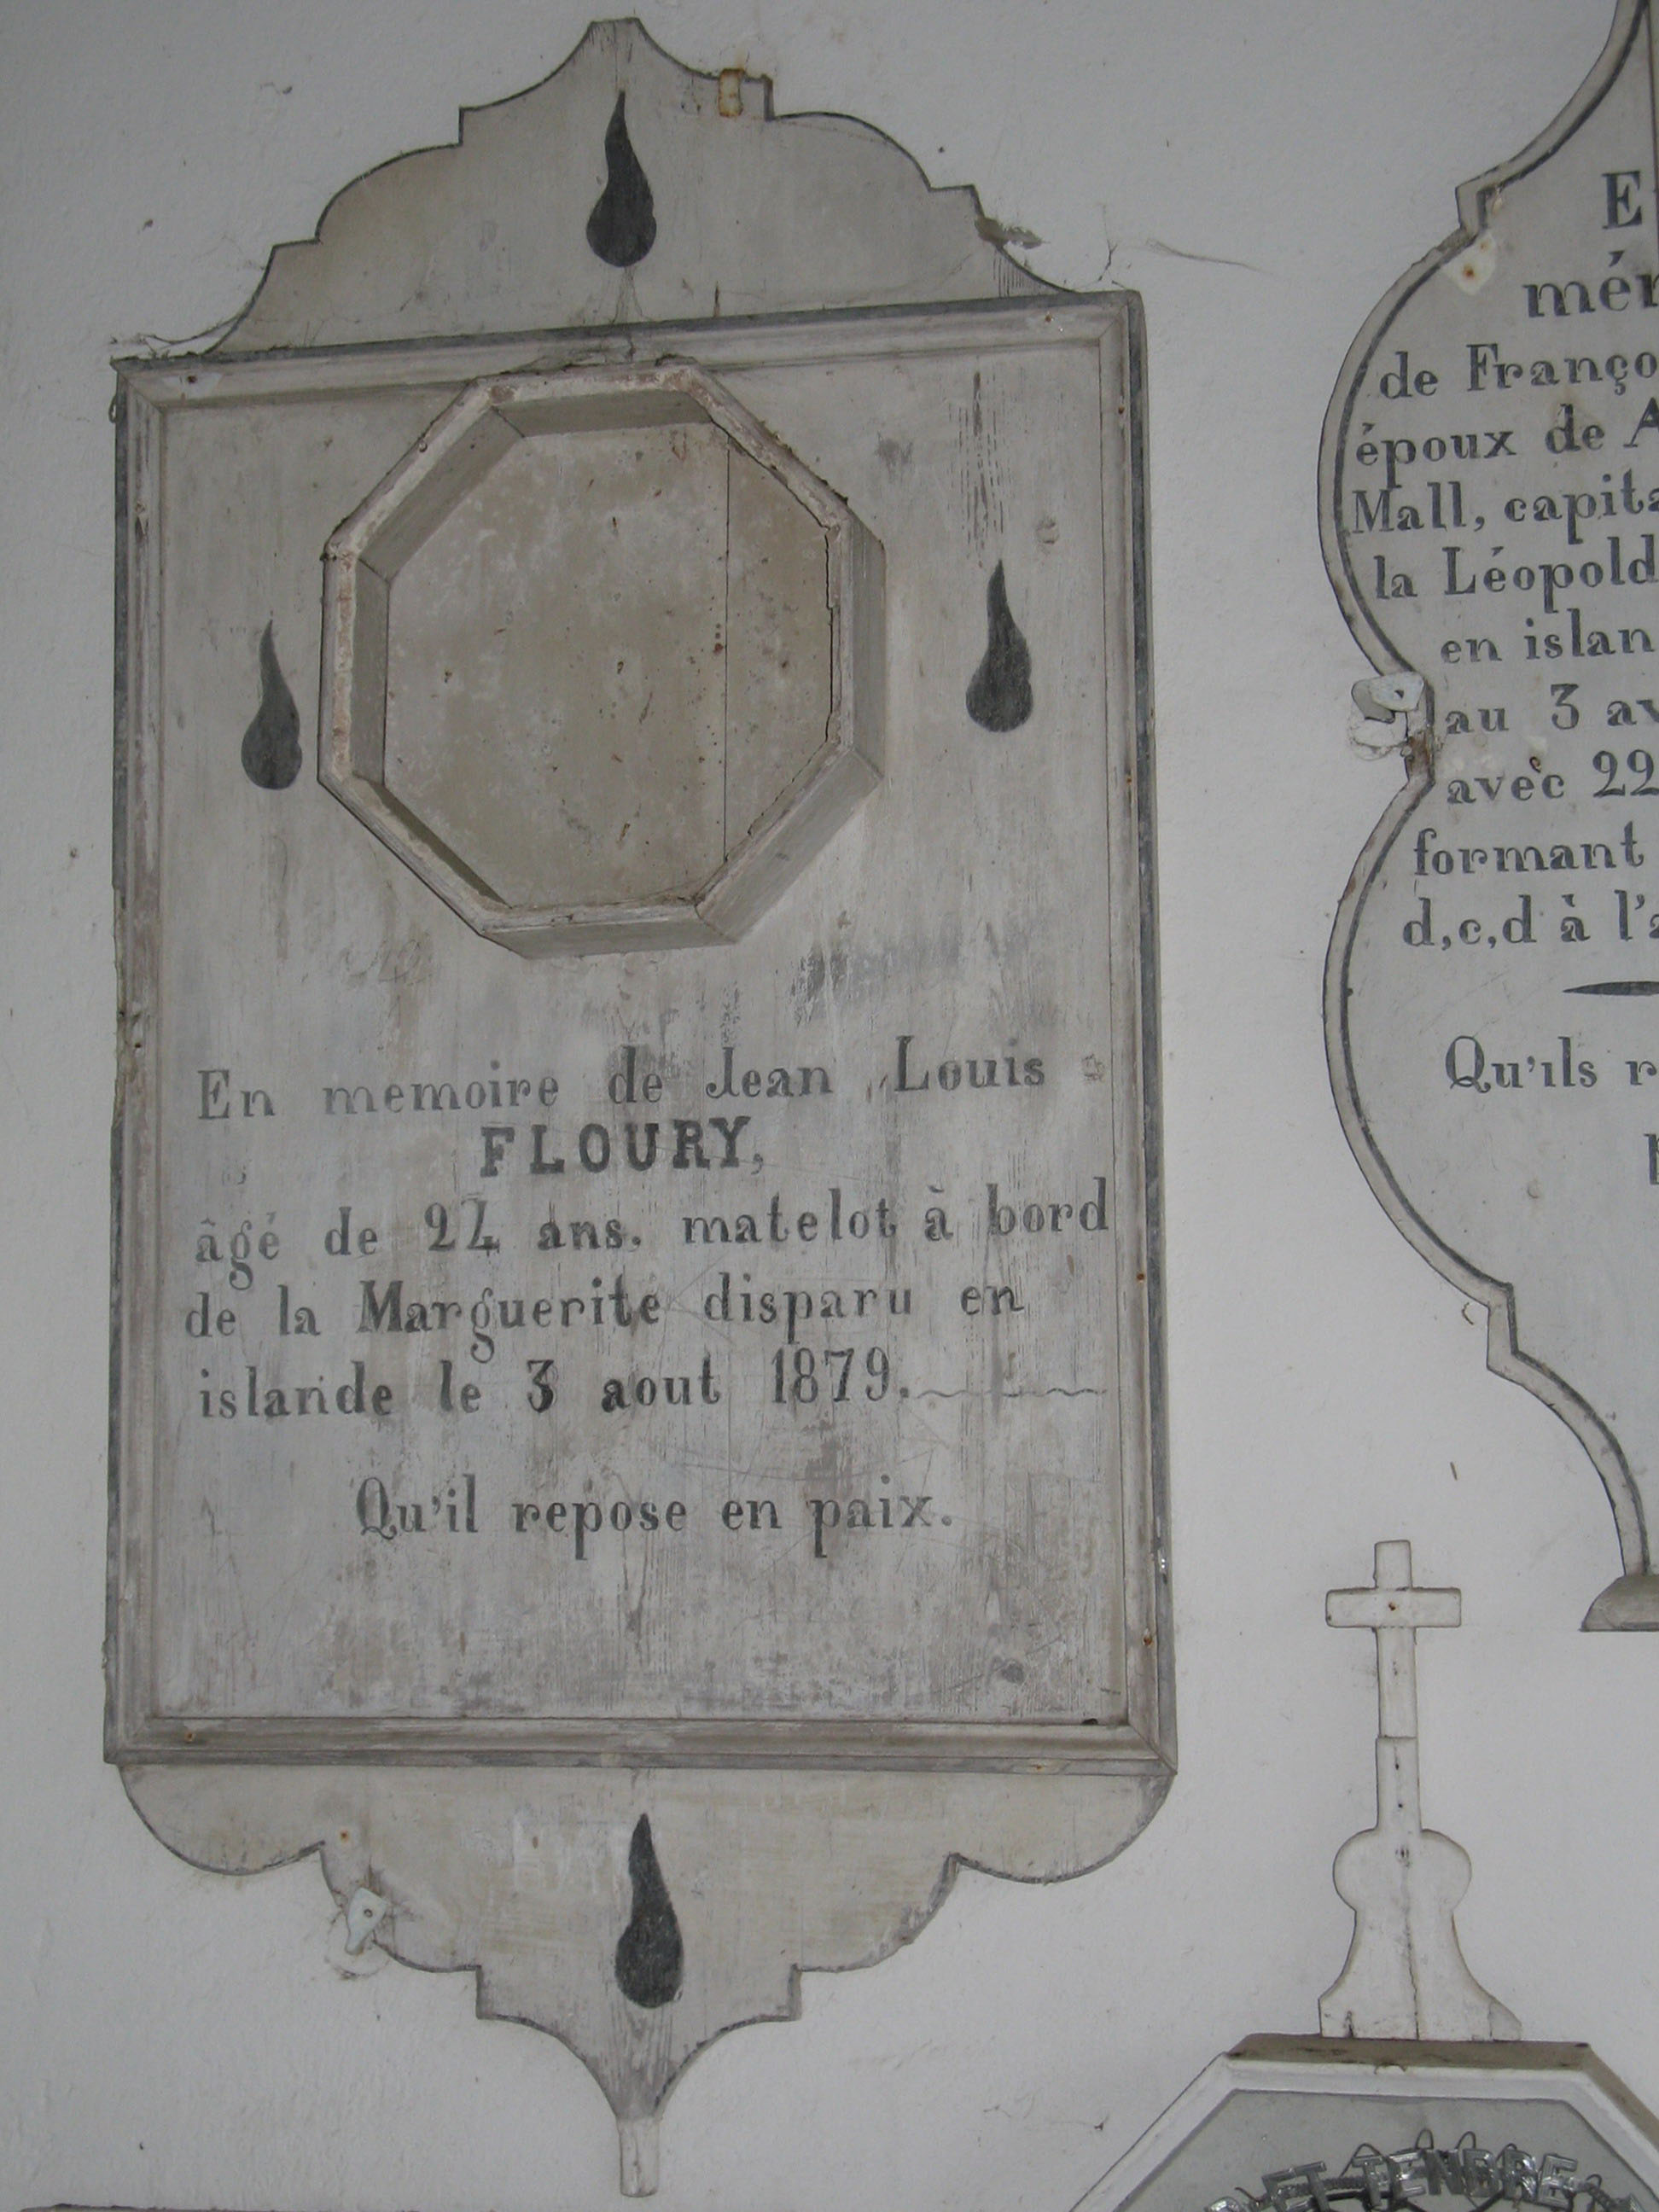 En memoire de Jean Louis
FLOURY,
âgé de 24 ans. matelot à bord
de la Marguerite disparu en
islande le 3 aout 1879.
Qu'il repose en paix.
de
époux de
Mall,
la
en
au 3
avec 22
formant
d,c,d à
Qu'ils
ET TENDRE